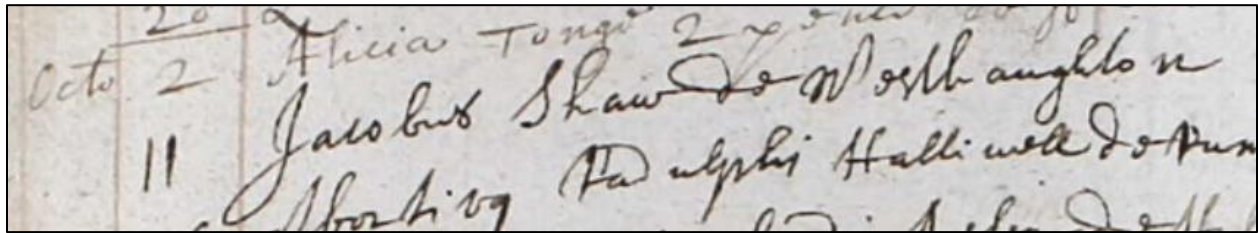 20
Octo 2 Alicia Tonge 2
11 Jacobus Shaw de Westhaughton
Abortivq Radulphi Halliwell de